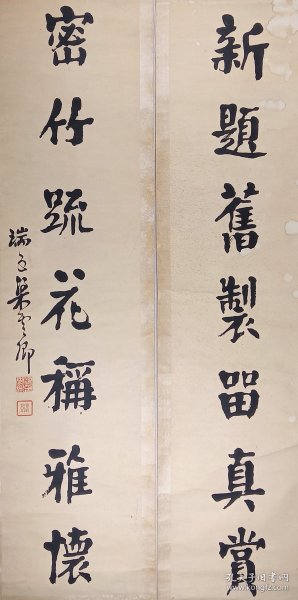 新題舊製留真賞
密竹疏花稱雅懷
瑞臣梁雲卿
孔夫子旧书网